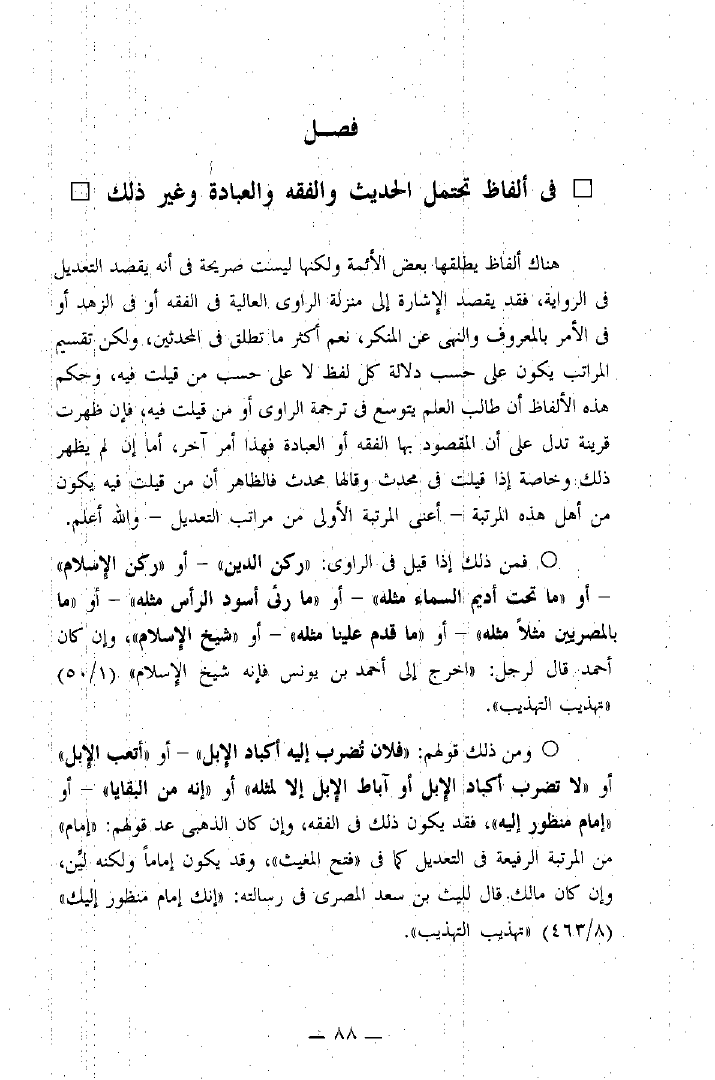 فصـــل
□ فى ألفاظ تحتمل الحديث والفقه والعبادة وغير ذلك □
هناك ألفاظ يطلقها بعض الأئمة ولكنها ليست صريحة فى أنه يقصد التعديل
فى الرواية، فقد يقصد الإشارة إلى منزلة الراوى العالية فى الفقه أو فى الزهد أو
فى الأمر بالمعروف والنهى عن المنكر، نعم أكثر ما تطلق فى المحدثين، ولكن تقسيم
المراتب يكون على حسب دلالة كل لفظ لا على حسب من قيلت فيه، وحكم
هذه الألفاظ أن طالب العلم يتوسع فى ترجمة الراوى أو من قيلت فيه، فإن ظهرت
قرينة تدل على أن المقصود بها الفقه أو العبادة فهذا أمر آخر، أما إن لم يظهر
ذلك وخاصة إذا قيلت فى محدث وقالها محدث فالظاهر أن من قيلت فيه يكون
من أهل هذه المرتبة – أعنى المرتبة الأولى من مراتب التعديل – والله أعلم.
○ فمن ذلك إذا قيل فى الراوى: «ركن الدين» – أو «ركن الإسلام»
– أو «ما تحت أديم السماء مثله» – أو «ما رئى أسود الرأس مثله» – أو «ما
بالمصريين مثلاً مثله» – أو «ما قدم علينا مثله» – أو «شيخ الإسلام»، وإن كان
أحمد قال لرجل: «اخرج إلى أحمد بن يونس فإنه شيخ الإسلام» (٥٠/١)
«تهذيب التهذيب».
○ ومن ذلك قولهم: «فلان تُضرب إليه أكباد الإبل» – أو «أتعب الإبل»
أو «لا تضرب أكباد الإبل أو آباط الإبل إلا لمثله» أو «إنه من البقايا» – أو
«إمام منظور إليه»، فقد يكون ذلك فى الفقه، وإن كان الذهبى عد قولهم: «إمام»
من المرتبة الرفيعة فى التعديل كما فى «فتح المغيث»، وقد يكون إماماً ولكنه ليّن،
وإن كان مالك قال لليث بن سعد المصرى فى رسالته: «إنك إمام منظور إليك»
(٤٦٣/٨) «تهذيب التهذيب».
— ٨٨ —